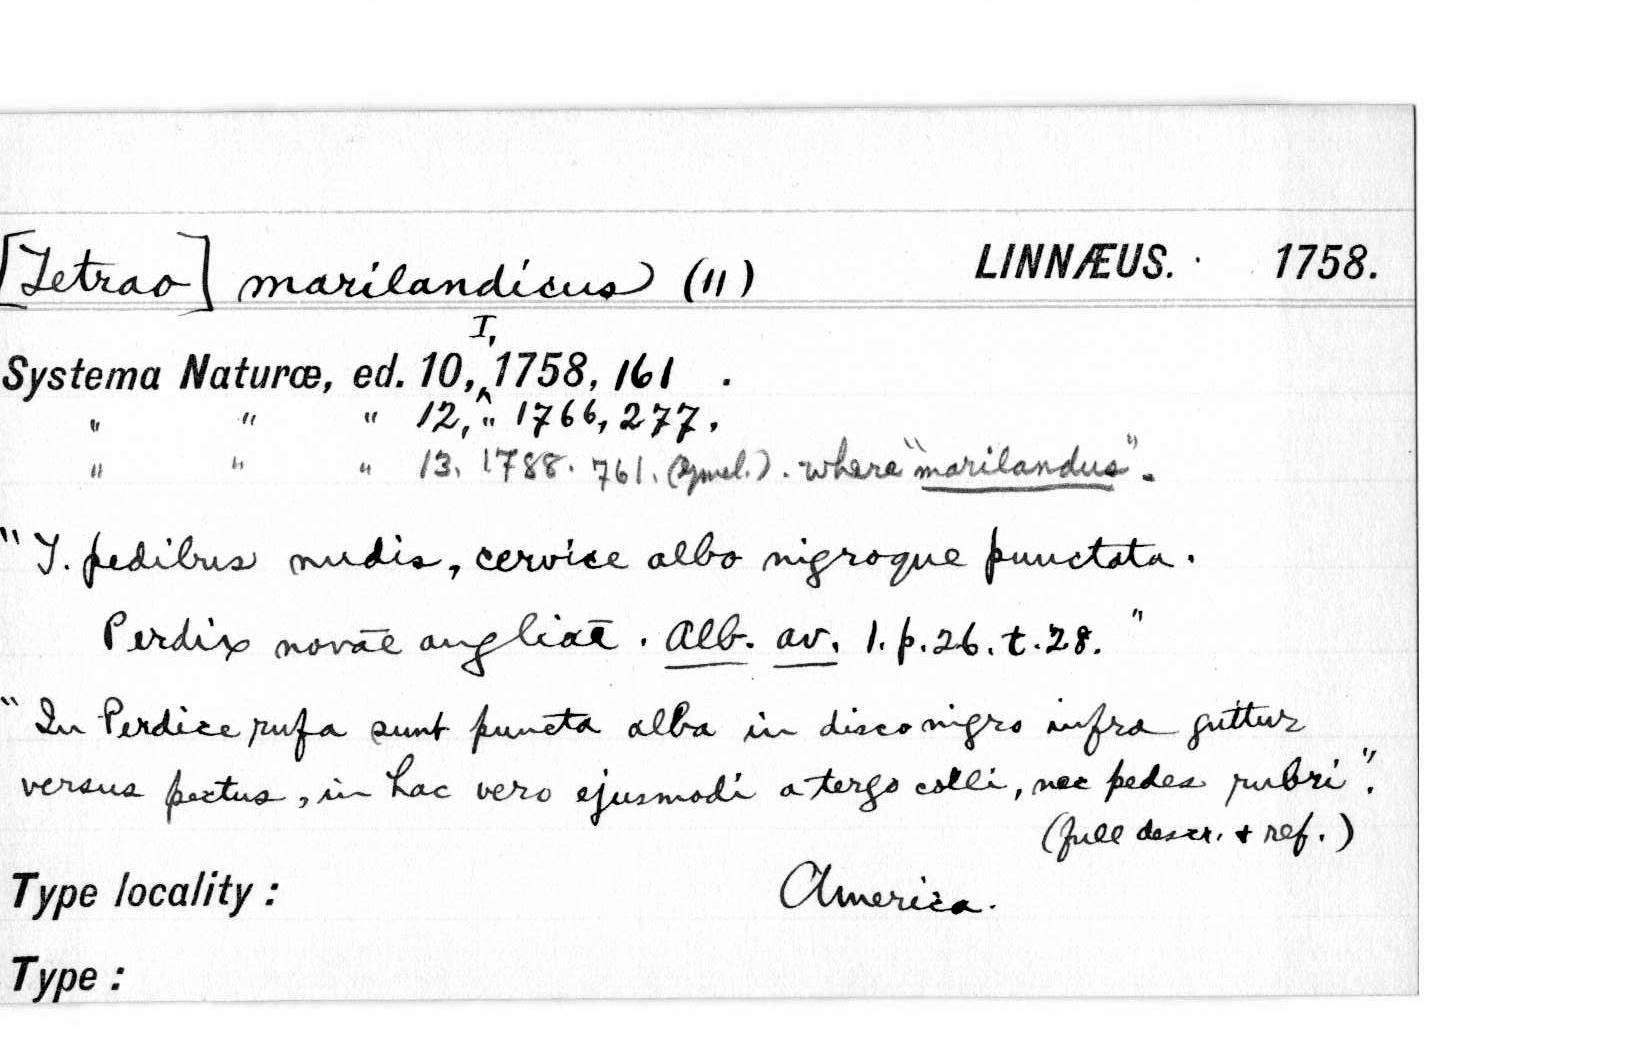 [Tetrao] marilandicus (11) LINNÆUS. 1758.
Systema Naturæ, ed. 10, I, 1758, 161 .
" " " 12, " 1766, 277.
" " " 13. 1788. 761. (Gmel.). where "marilandus".
"T. pedibus nudis, cervice albo nigroque punctata.
Perdix novae angliae. Alb. av. 1. p. 26. t. 28."
"In Perdice rufa sunt puncta alba in disco nigro infra guttur
versus pectus, in hac vero ejusmodi a tergo colli, nec pedes rubri".
(full descr. + ref.)
Type locality: America.
Type: